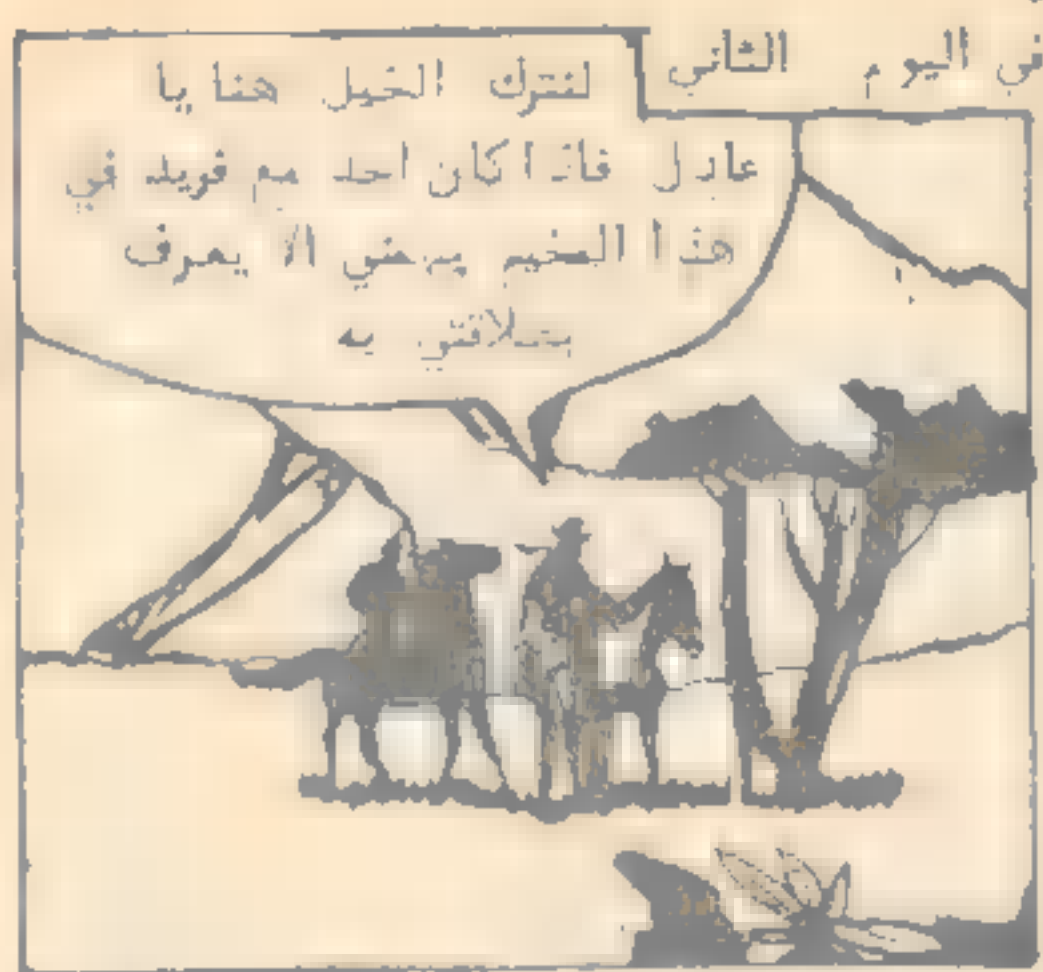 في اليوم الثاني
لنترك الخيل هنا يا
عادل فاذا كان احد مع فريد في
هذا المخيم يجب الا يعرف
به